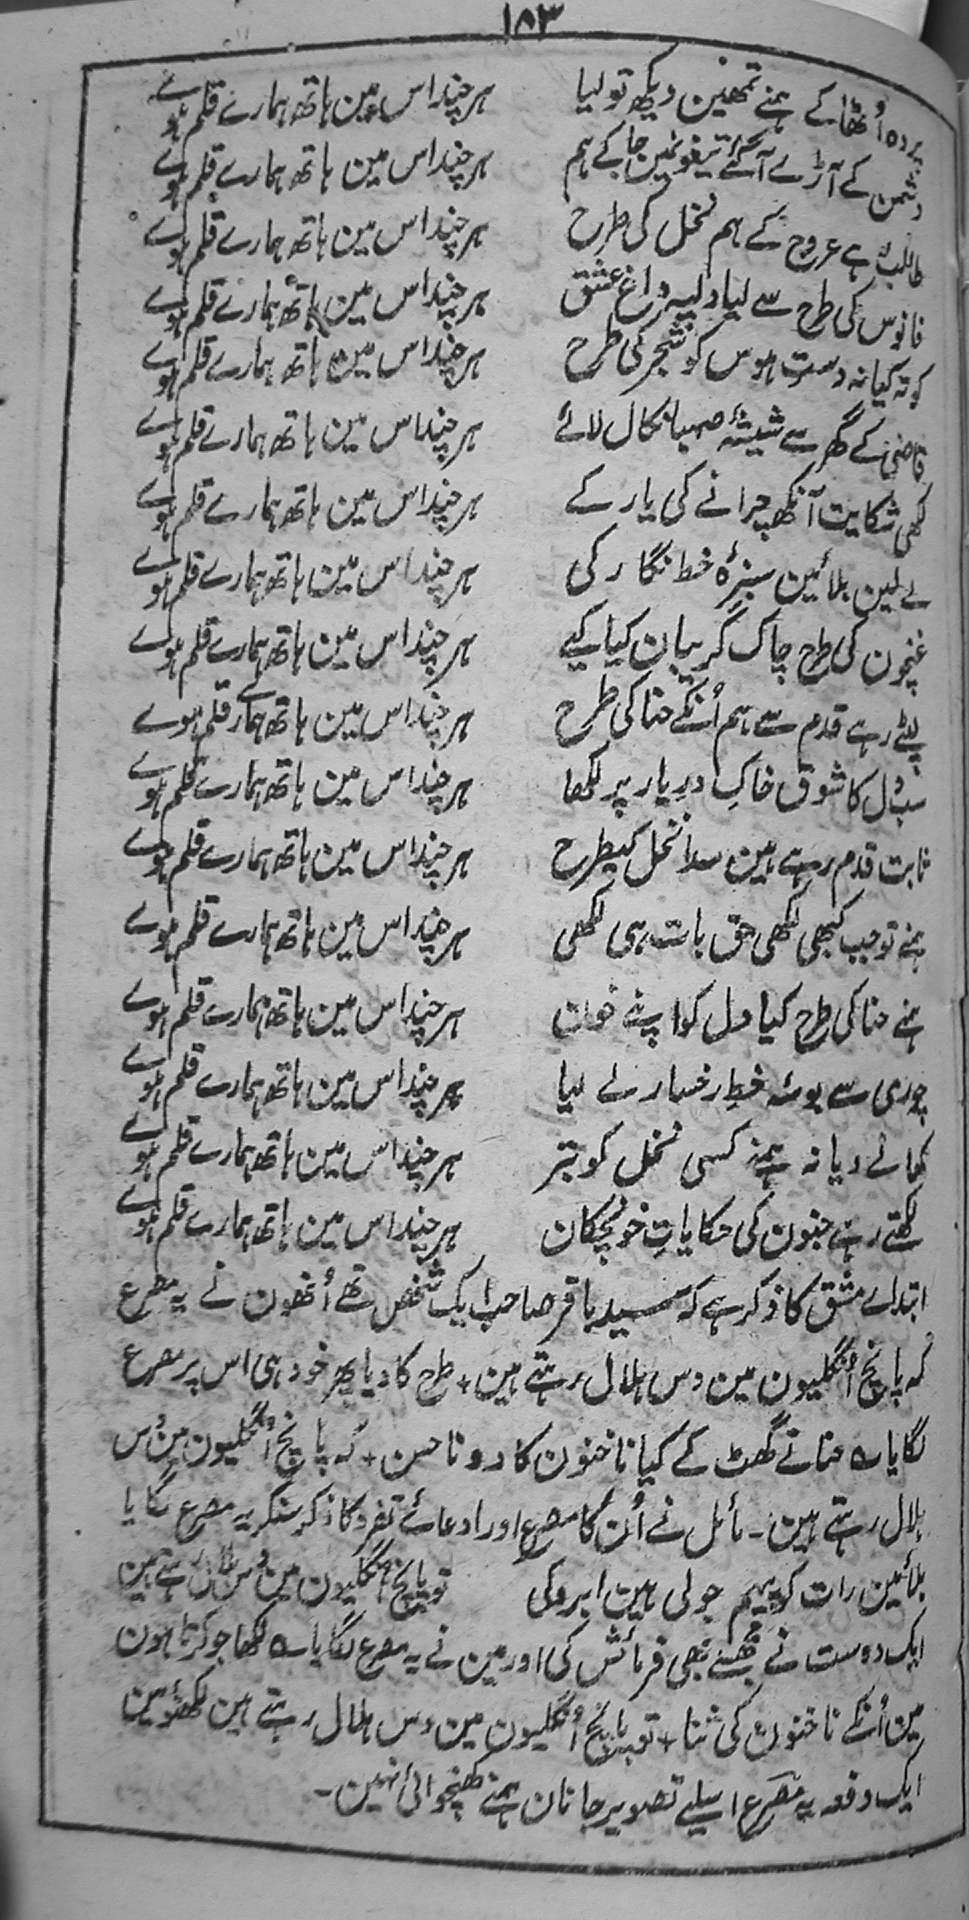 ۱۸۳
پردہ اُٹھا کے ہمنے تمھین دیکھ تو لیا ہرچند اس مین ہاتھ ہمارے قلم ہوے
دشمن کے آڑے آگئے تیغونمین جا کے ہم ہرچند اس مین ہاتھ ہمارے قلم ہوے
طالب ہے عروج کے ہم نخل کی طرح ہرچند اس مین ہاتھ ہمارے قلم ہوے
فانوس کی طرح سے لیا دلپہ داغ عشق ہرچند اس مین ہاتھ ہمارے قلم ہوے
کوتہ کیا نہ دست ہوس کو شجر کی طرح ہرچند اس مین ہاتھ ہمارے قلم ہوے
قاضی کے گھر سے شیشۂ صہبا نکال لائے ہرچند اس مین ہاتھ ہمارے قلم ہوے
لکھی شکایت آنکھ چرانے کی یار کے ہرچند اس مین ہاتھ ہمارے قلم ہوے
لے لین بلائین سبزۂ خط نگار کی ہرچند اس مین ہاتھ ہمارے قلم ہوے
غنچون کی طرح چاک گریبان کیا کیے ہرچند اس مین ہاتھ ہمارے قلم ہوے
لپٹے رہے قدم سے ہم اُنکے حنا کی طرح ہرچند اس مین ہاتھ ہمارے قلم ہوے
سب دل کا شوق خاکِ درِ یار پر لکھا ہرچند اس مین ہاتھ ہمارے قلم ہوے
ثابت قدم رہے ہین سدا نخل کیطرح ہرچند اس مین ہاتھ ہمارے قلم ہوے
ہمنے تو جب کبھی لکھی حق بات ہی لکھی ہرچند اس مین ہاتھ ہمارے قلم ہوے
ہمنے حنا کی طرح کیا دل کو اپنے خون ہرچند اس مین ہاتھ ہمارے قلم ہوے
چوری سے بوسۂ خطِ رخسار لے لیا ہرچند اس مین ہاتھ ہمارے قلم ہوے
کھانے دیا نہ ہمنے کسی نخل کو تبر ہرچند اس مین ہاتھ ہمارے قلم ہوے
لکھتے رہے جنون کی حکایاتِ خونچکان ہرچند اس مین ہاتھ ہمارے قلم ہوے
ابتداے مشق کا ذکر ہے کہ سید باقر صاحب ایک شخص تھے اُنھون نے یہ مصرع
کہ پانچ اُنگلیون مین دس ہلال رہتے ہین + طرح کا دیا پھر خود ہی اس پر مصرع
لگایا ؎ حنا نے گھٹ کے کیا ناخنون کا دونا حسن + کہ پانچ اُنگلیون مین دس
ہلال رہتے ہین۔ مائل نے اُن کا مصرع اور ادعائے تفرد کا ذکر سنکر یہ مصرع لگایا
بلائین رات کو پیہم جو لی ہین ابرو کی تو پانچ اُنگلیون مین دس ہلال رہتے ہین
ایک دوست نے مجھسے بھی فرمائش کی اور مین نے یہ مصرع لگایا ؎ لکھا جو کرتا ہون
مین اُنکے ناخنون کی ثنا + تو پانچ اُنگلیون مین دس ہلال رہتے ہین لکھنؤ مین
ایک دفعہ یہ مصرع اسلیے تصویر جانان ہمنے کھنچوائی نہین۔